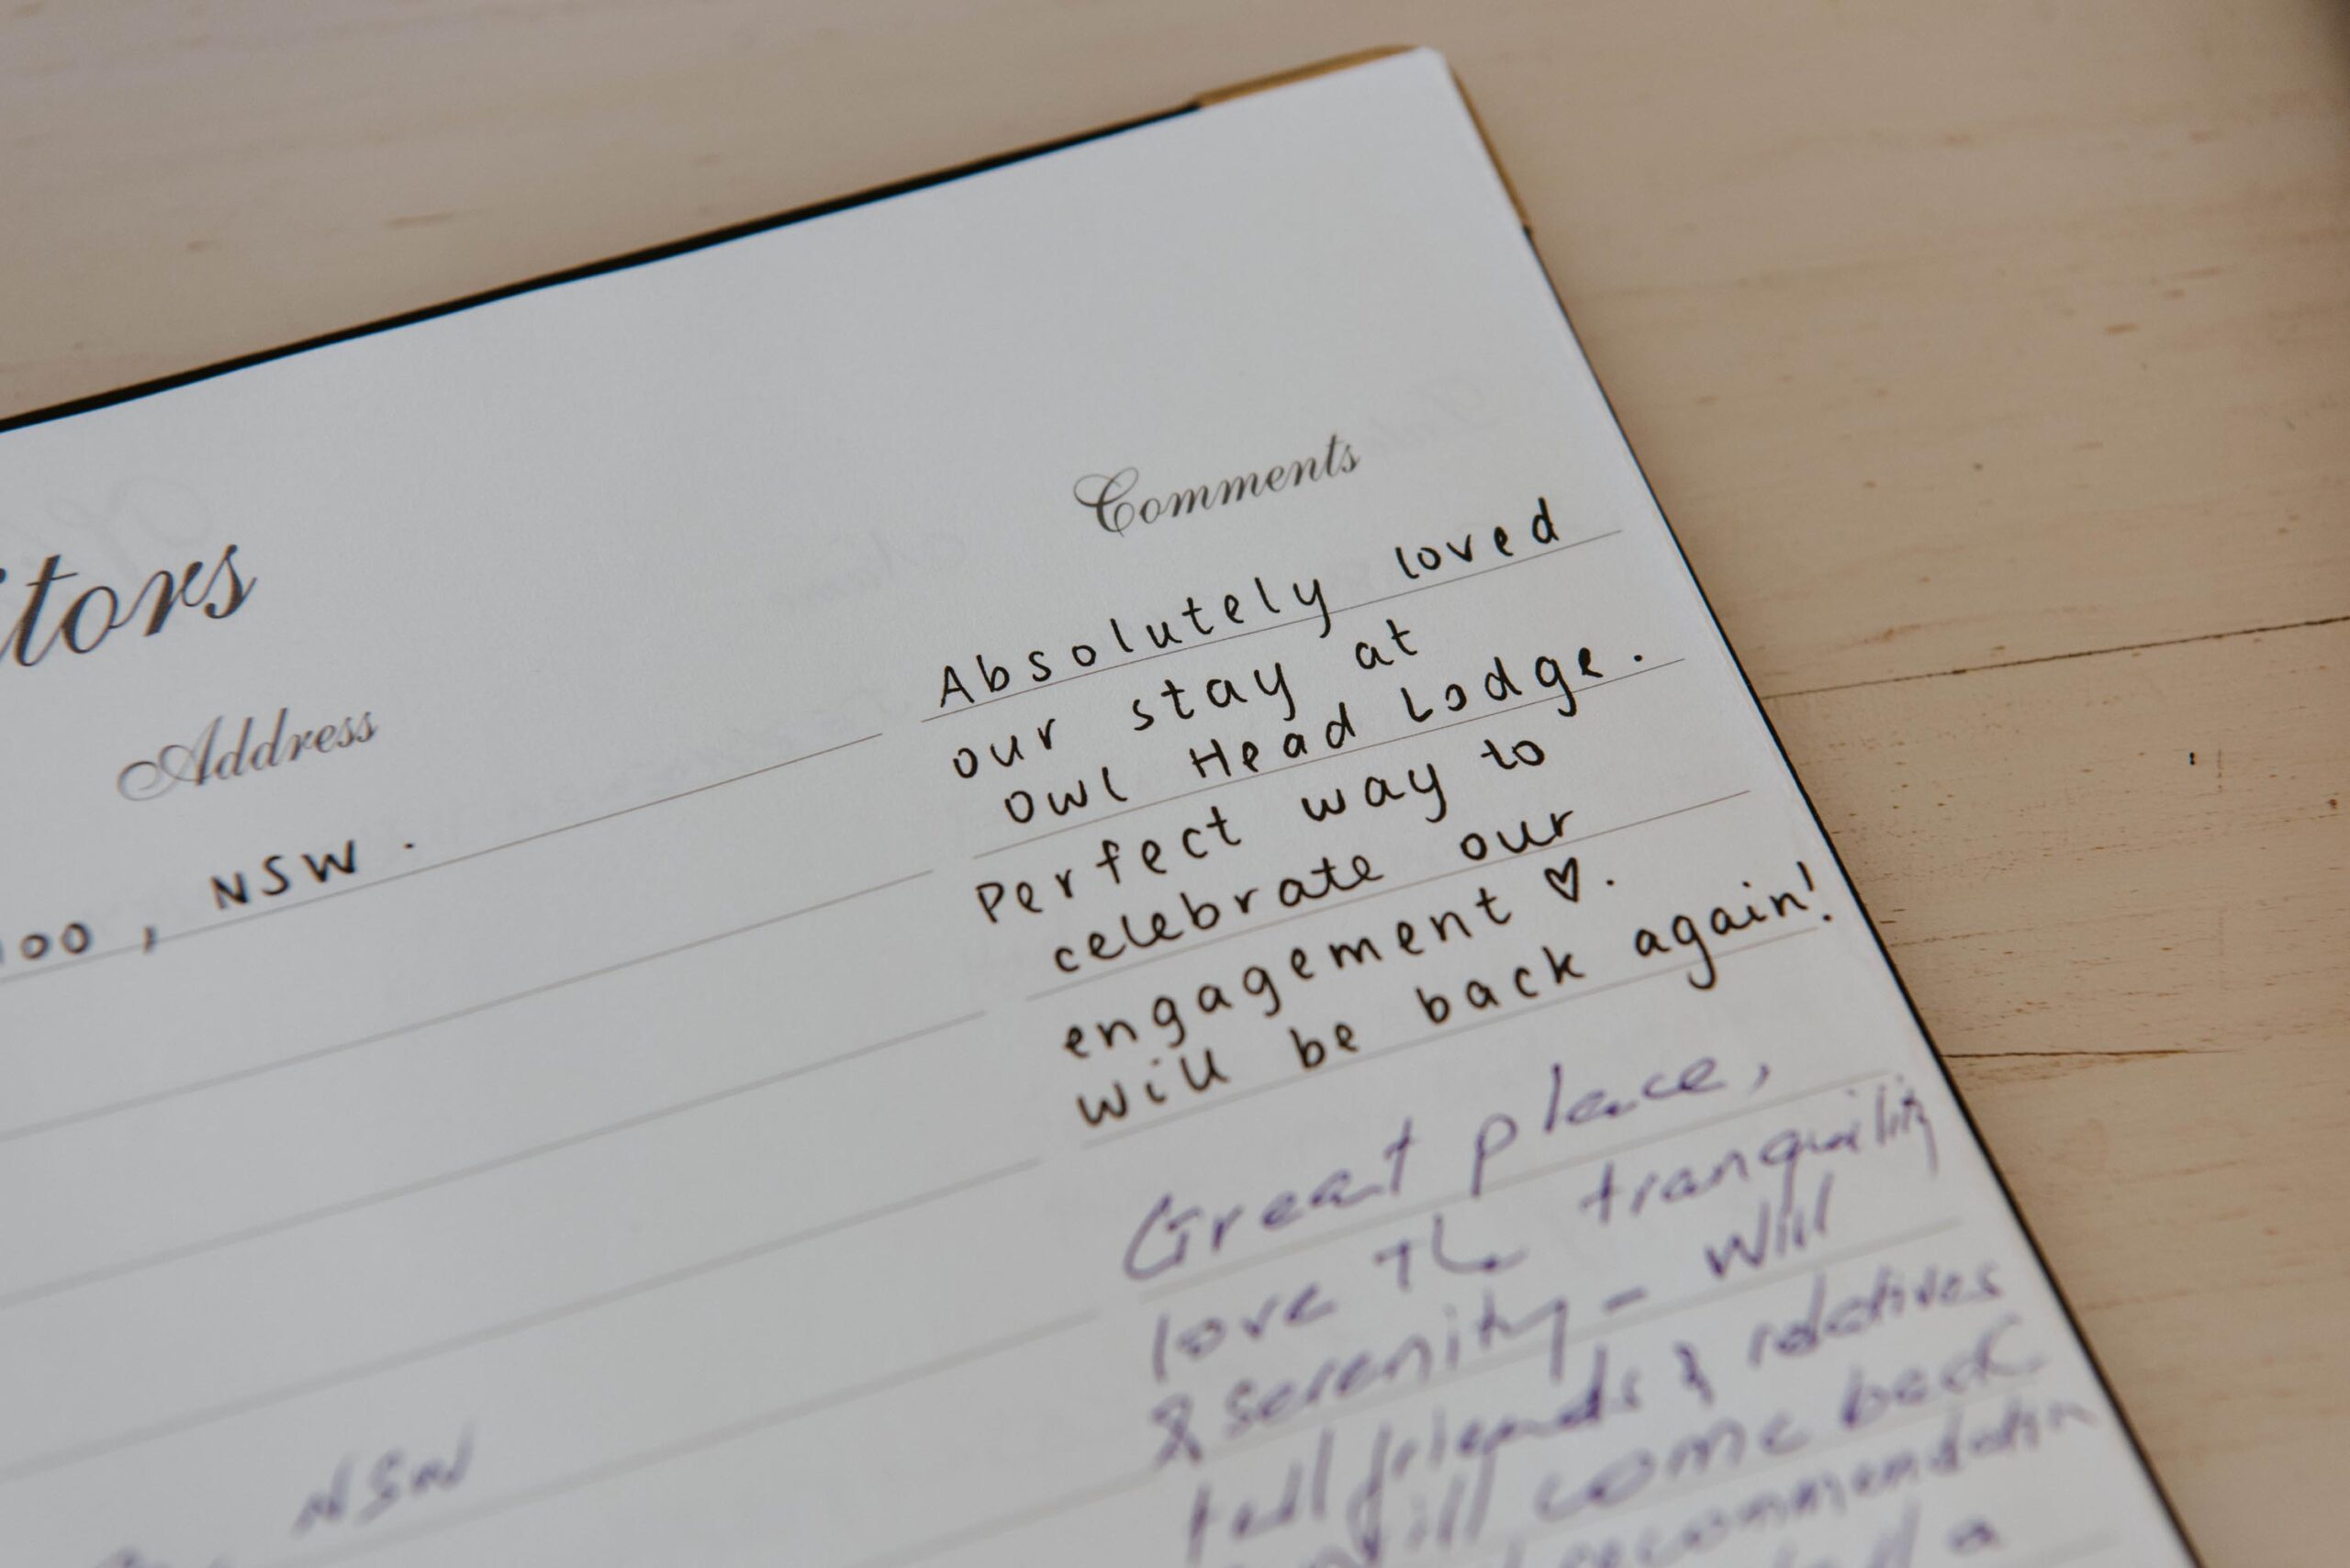 itors
Address
Comments
100, NSW.
Absolutely loved
our stay at
Owl Head Lodge.
Perfect way to
celebrate our
engagement ♡.
Will be back again!
NSW
Great place,
love the tranquility
& serenity - Will
tell friends & relatives
will come back
recommendation
a